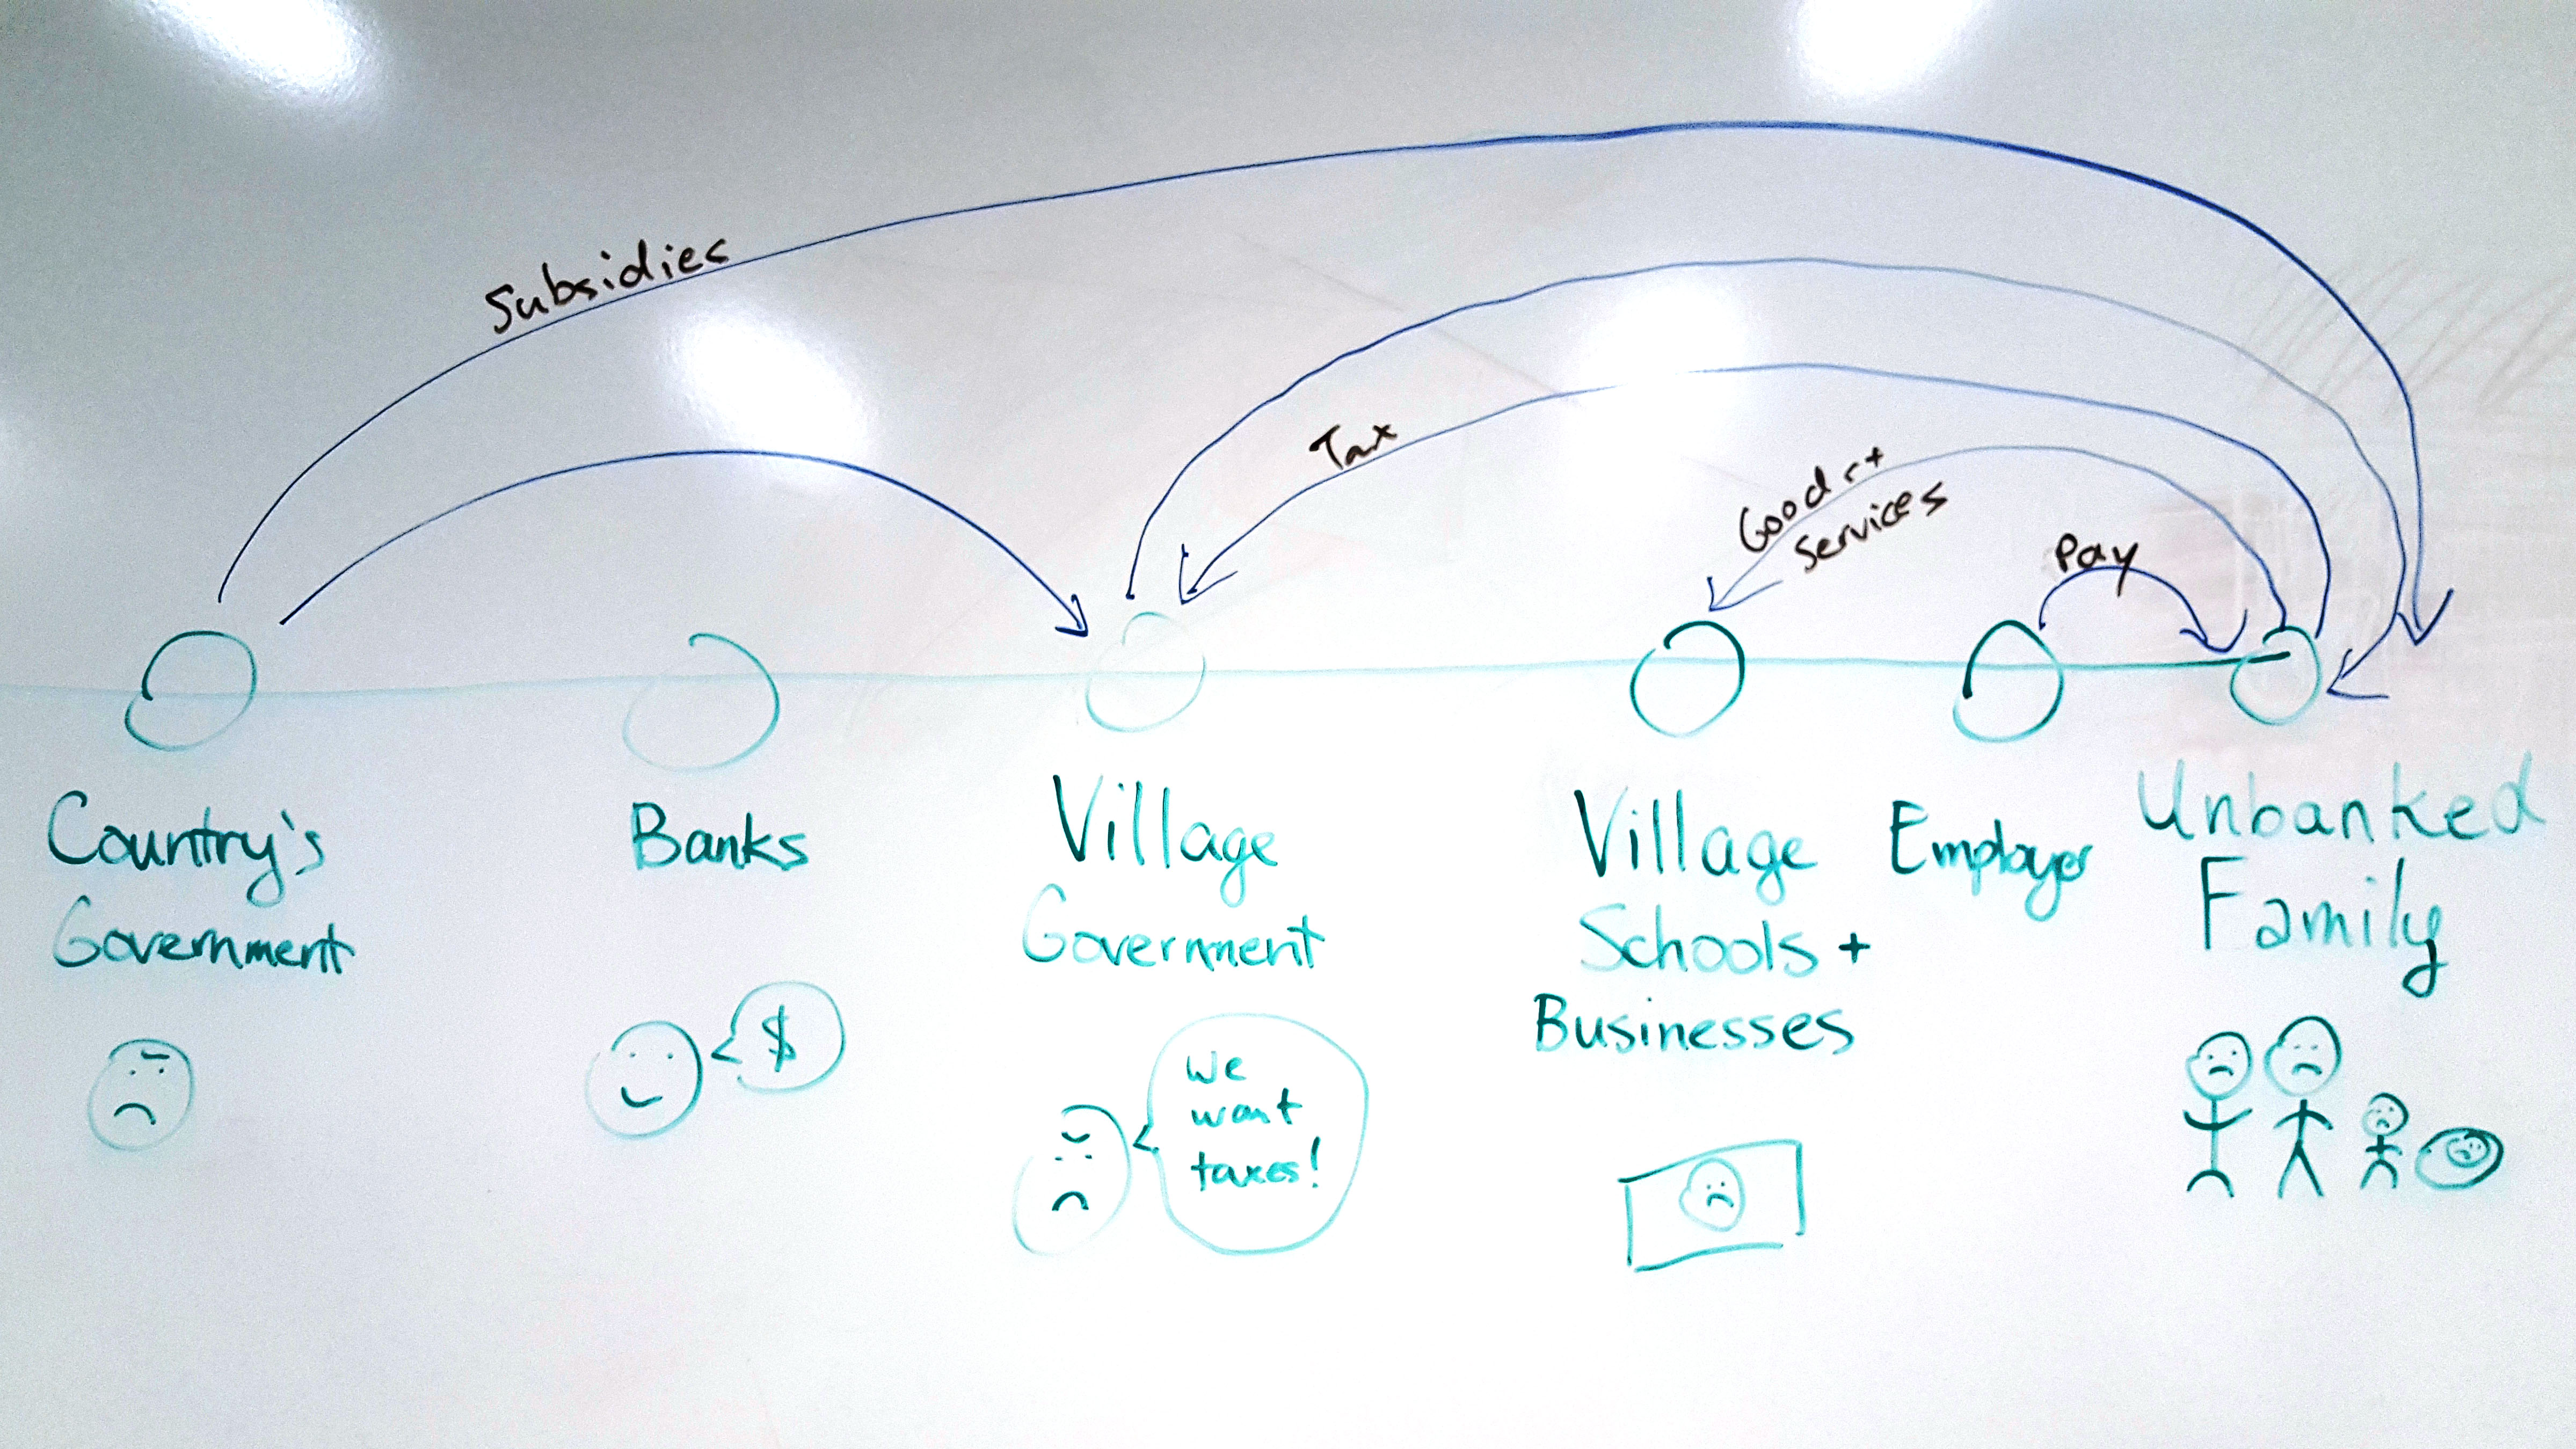 Subsidies
Tax
Goods +
Services
Pay
Country's
Government
Banks
Village
Government
Village
Schools +
Businesses
Employer
Unbanked
Family
$
We
want
taxes!